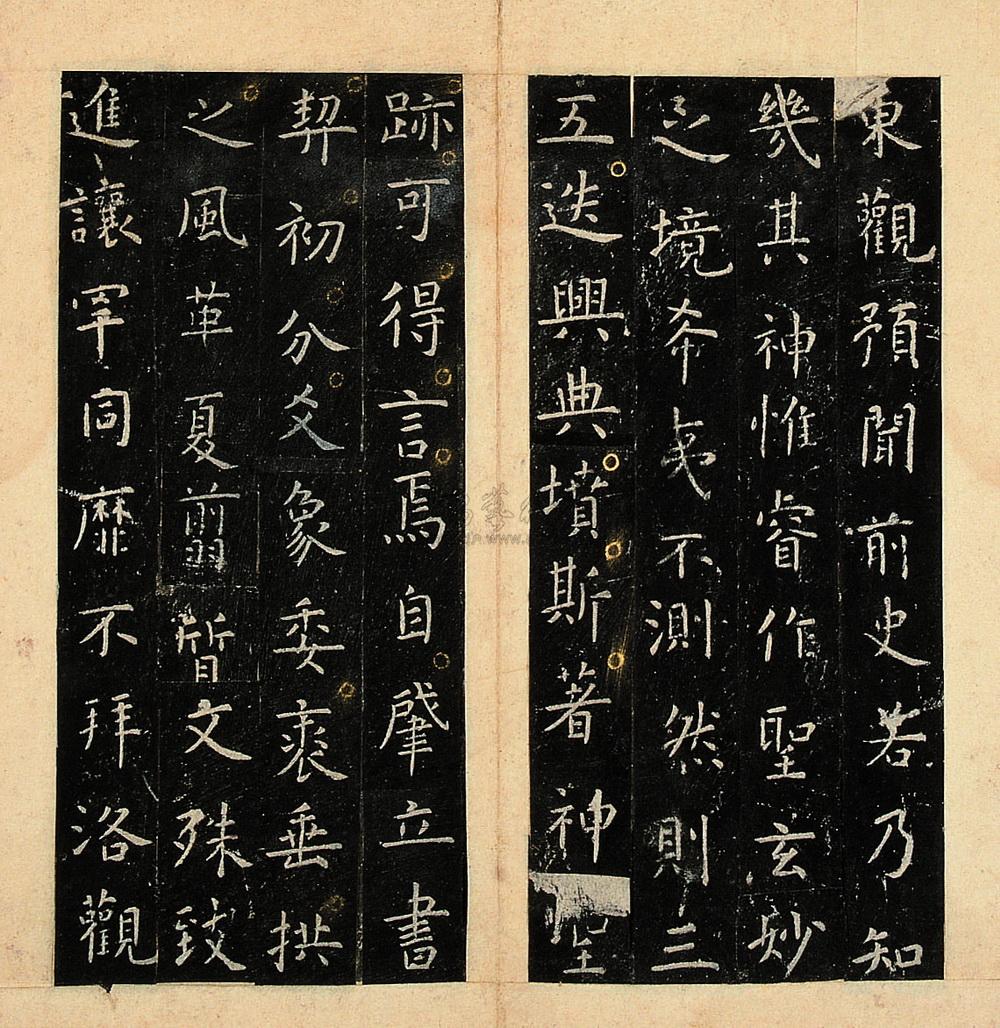 東觀預聞前史若乃知
幾其神惟睿作聖玄妙
之境希夷不測然則三
五迭興典墳斯著神聖
跡可得言焉自肇立書
契初分爻象委裘垂拱
之風革夏翦曆文殊致
進讓罕同靡不拜洛觀